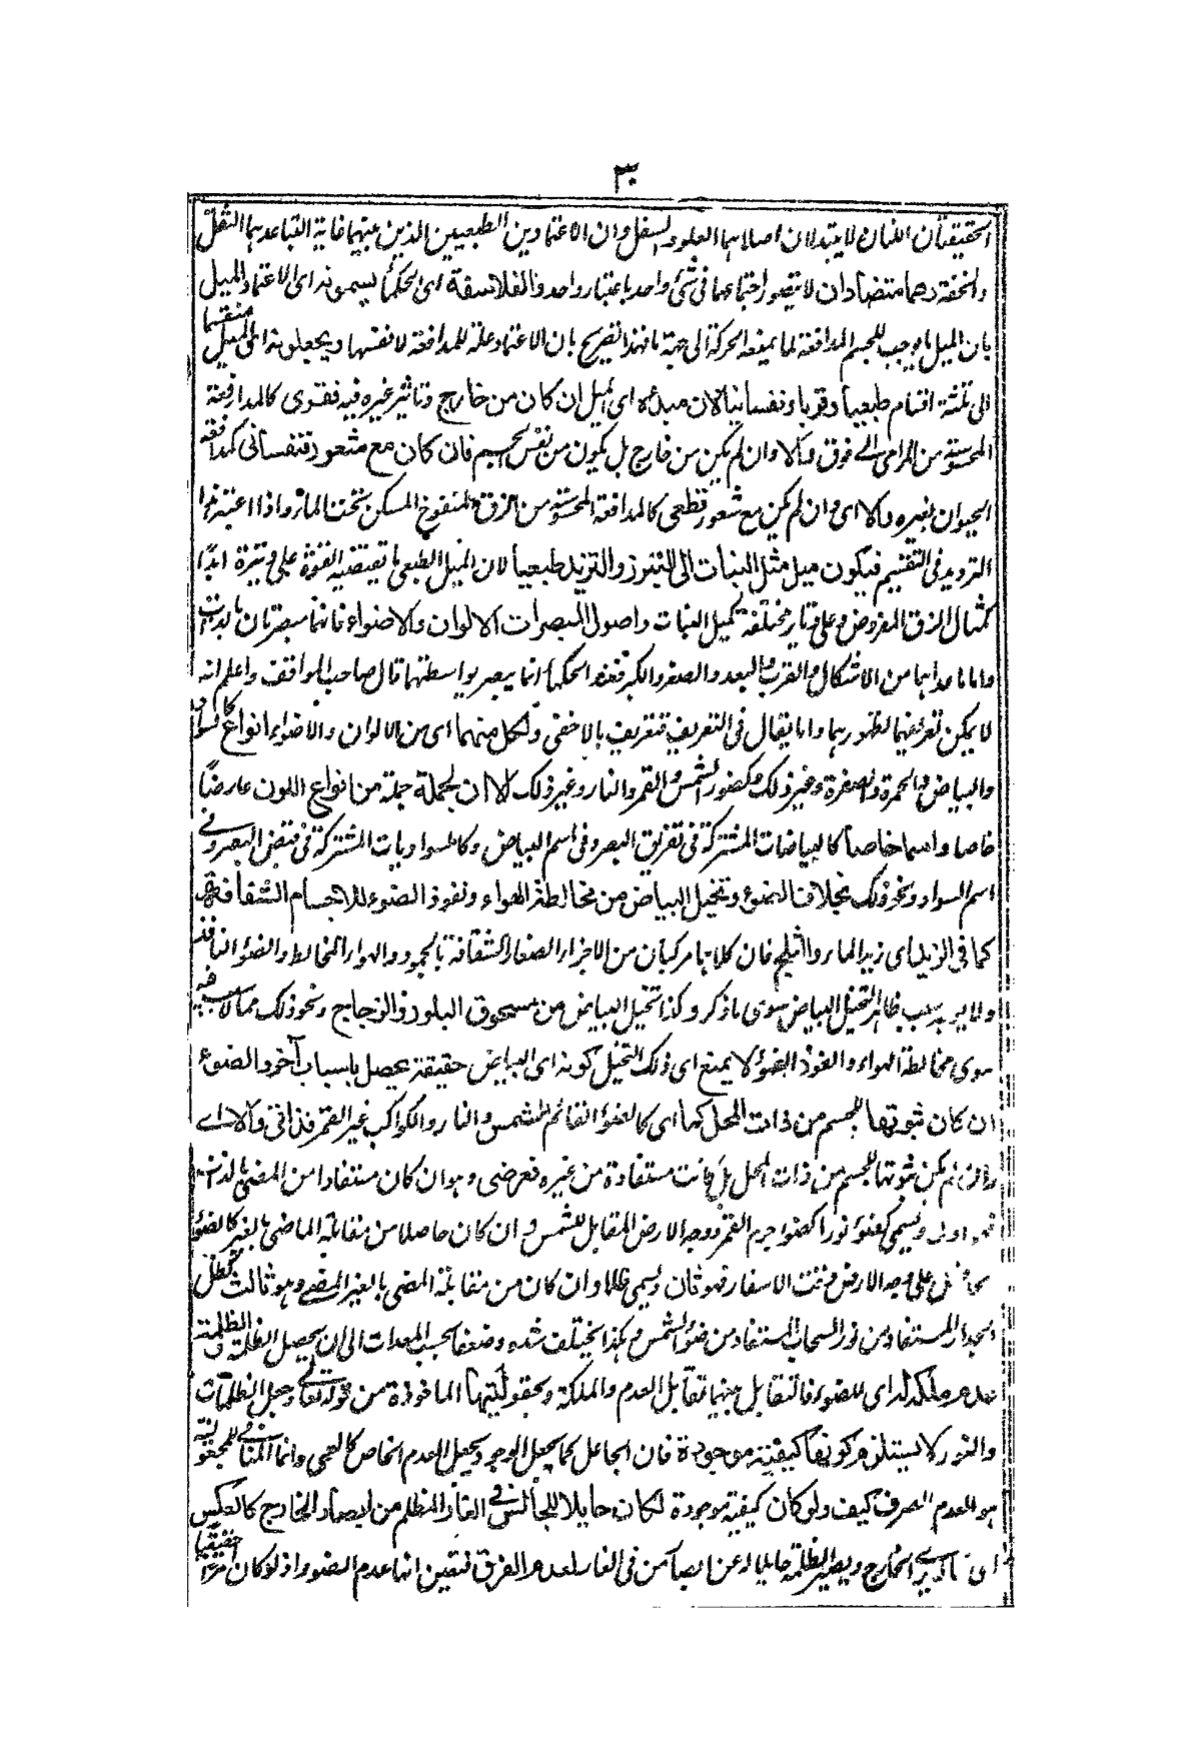 ٣٠
الحقيقتان اللتان لا يتبدلان اصلا هما العلو والسفل وان الاعتمادين الطبعيين الذين بينهما غاية التباعد هما الثقل
والخفة وهما متضادان لا يتصور اجتماعهما فى شئ واحد باعتبار واحد والفلاسفة اى الحكماء يسمونه اى الاعتماد الميل
بان الميل ما يوجب للجسم المدافعة لما يمنعه الحركة الى جهة ما فهذا تصريح بان الاعتماد علة للمدافعة لا نفسها ويجعلونه اى الميل منقسما
الى ثلثة اقسام طبعيا وقسريا ونفسانيا لان مبدءه اى الميل ان كان من خارج وتاثير غيره فيه فقسرى كالمدافعة
المحسوسة من المرامى الى فوق والا وان لم يكن من خارج بل يكون من نفس الجسم فان كان مع شعور فنفسانى كمدافعة
الحيوان لغيره والا اى وان لم يكن مع شعور فطبعى كالمدافعة المحسوسة من الزق المنفوخ المسكن تحت الماء واذا اعتبر هذا
الترديد فى التقسيم فيكون ميل مثل النبات الى التبرز والتزيد طبعيا لان الميل الطبعى ما تقتضيه القوة على وتيرة ابدًا
كمثال الزق المفروض وعلى وتاير مختلفة كميل النبات واصول المبصرات الالوان والاضواء فانهما مبصرتان بالذات
واما ما عداهما من الاشكال والقرب والبعد والصغر والكبر فعند الحكماء انما يبصر بواسطتهما قال صاحب المواقف واعلم انه
لا يمكن تعريفهما لظهورهما واما يقال فى التعريف تعريف بالاخفى ولكل منهما اى من الالوان والاضواء انواع كالسواد
والبياض والحمرة والصفرة وغير ذلك وكضوء الشمس والقمر والنار وغير ذلك الا ان لجملة جملة من انواع اللون عارضًا
خاصا واسما خاصا كالبياضات المشتركة فى تفريق البصر وفى اسم البياض وكالسواديات المشتركة فى قبض البصر وفى
اسم السواد ونحو ذلك بخلاف الضوء وتخيل البياض من مخالطة الهواء ونفوذ الضوء للاجسام الشفافة
كما فى الزبد اى زبد الماء والثلج فان كلاهما مركبان من الاجزاء الصغار الشفافة بالجمود والهواء المخالط والضوء النافذ
ولا يرى سبب ظاهر لتخيل البياض سوى ما ذكر وكذا تخيل البياض من مسحوق البلور والزجاج ونحو ذلك مما لا سبب فيه
سوى مخالطة الهواء والنفوذ الضوء لا يمنع اى ذلك التخيل كونه اى البياض حقيقة يحصل باسباب آخر والضوء
ان كان ثبوتها للجسم من ذات المحل كما اى كالضوء القائم للشمس والنار والكواكب غير القمر فذاتى والا اى
وان لم يكن ثبوتها للجسم من ذات المحل بل كانت مستفادة من غيره فعرضى وهو ان كان مستفادا من المضئ لذاته
اول ويسمى كضوء نورا كضوء جرم القمر ووجه الارض المقابل للشمس وان كان حاصلا من مقابلة الماضى بالغير كالضوء
على وجه الارض وقت الاسفار فهو ثان ويسمى ظلا وان كان من مقابلة المضى بالغير المضى وهو ثالث كظل
الجدار المستفاد من نور السحاب المستفاد من ضوء الشمس وهكذا يختلف شده وضعفا بحسب المعدات الى ان يحصل الظلمة والظلمة
عدم ملكة له اى للضوء فالتقابل بينهما تقابل العدم والملكة ومجعوليتها الماخوذة من قوله تعالى وجعل الظلمات
والنور لا يستلزم كونها كيفية موجودة فان الجاعل كما يجعل الوجود يجعل العدم الخاص كالعمى وانما المنافى للمجعولية
هو العدم الصرف كيف ولو كان كيفية موجودة لكان حايلا للجالس فى الغار المظلم من ابصار الخارج كالعكس
الخارج ويصير الظلمة حايلا له عن ابصار من فى الغار لعدم الفرق فتعين انها عدم الضوء واذ لو كان امرًا حقيقيا